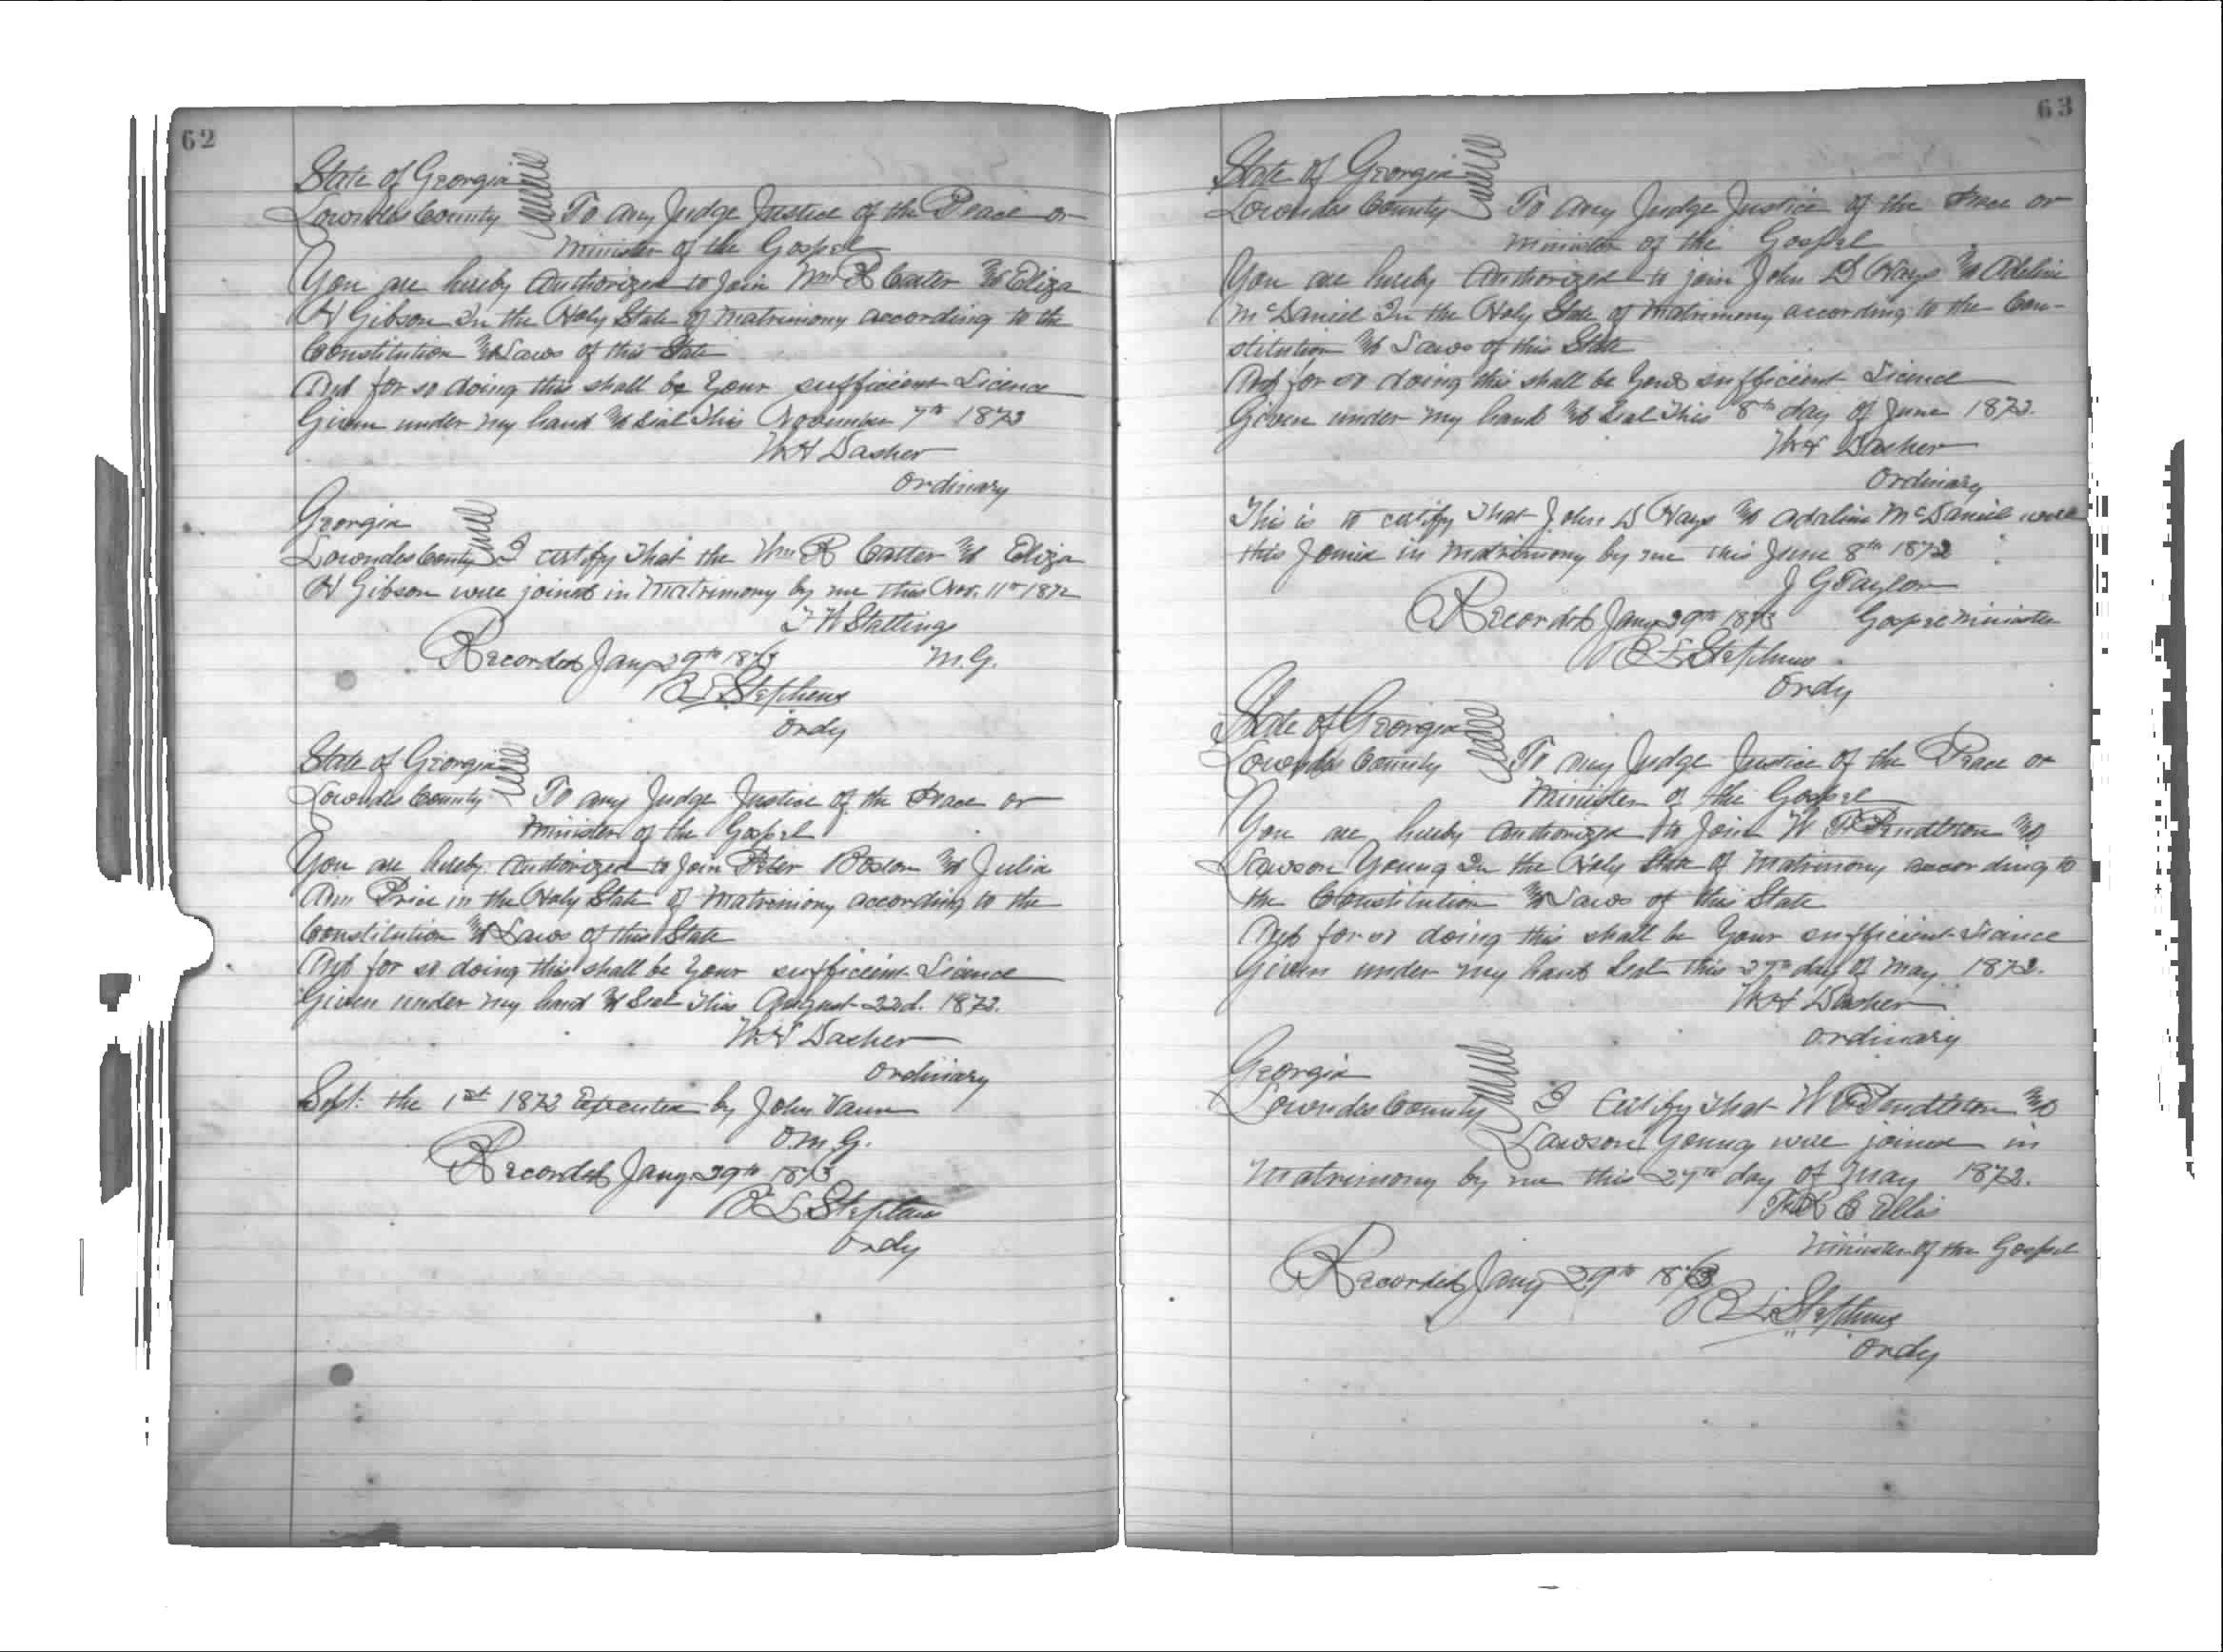 62
State of Georgia
Lowndes County To any Judge Justice of the Peace or
Minister of the Gospel
You are hereby Authorized to Join Wm R Carter & Eliza
H Gibson In the Holy State of Matrimony according to the
Constitution & Laws of this State
And for so doing this shall be Your sufficient Licence
Given under my hand & Seal This November 7th 1872
W H Dasher
Ordinary
Georgia
Lowndes County I certify that the Wm R Carter & Eliza
H Gibson were joined in Matrimony by me this Nov. 11th 1872
T W Stallings
M.G.
Recorded Jany 29th 1873
R L Stephens
Ordy
State of Georgia
Lowndes County To any Judge Justice of the Peace or
Minister of the Gospel
You are hereby Authorized to Join Peter Boston & Julia
Ann Price in the Holy State of Matrimony according to the
Constitution & Laws of this State
And for so doing this shall be Your sufficient Licence
Given under my hand & Seal This August 22d. 1872.
W H Dasher
Ordinary
Sept. the 1st 1872 Executed by John Vann
O.M.G.
Recorded Jany 29th 1873
R L Stephens
Ordy
63
State of Georgia
Lowndes County To any Judge Justice of the Peace or
Minister of the Gospel
You are hereby Authorized to join John D Hays & Adeline
McDaniel In the Holy State of Matrimony according to the Con-
stitution & Laws of this State
And for so doing this shall be Your sufficient Licence
Given under my hand & Seal This 8th day of June 1872.
W H Dasher
Ordinary
This is to certify that John D Hays & Adaline McDaniel were
this Joined in Matrimony by me this June 8th 1872
J G Taylor
Gospel Minister
Recorded Jany 29th 1873
R L Stephens
Ordy
State of Georgia
Lowndes County To any Judge Justice of the Peace or
Minister of the Gospel
You are hereby Authorized to Join W Pendleton &
Lawson Young In the Holy State of Matrimony according to
the Constitution & Laws of this State
And for so doing this shall be Your sufficient Licence
Given under my hand Seal this 27th day of May 1872.
W H Dasher
Ordinary
Georgia
Lowndes County I Certify that W Pendleton &
Lawson Young were joined in
Matrimony by me this 27th day of May 1872.
Ellis
Minister of the Gospel
Recorded Jany 29th 1873
R L Stephens
Ordy